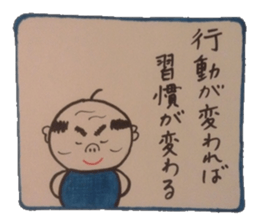 行動が変われば
習慣が変わる